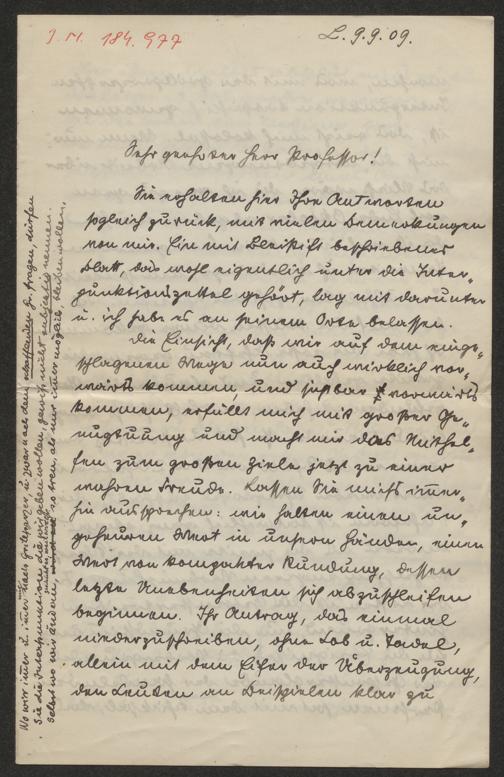 I. N. 184.977
L. 9.9.09.
Sehr geehrter Herr Professor!
Sie erhalten hier Ihre Antworten
sogleich zurück, mit vielen Bemerkungen
von mir. Ein mit Bleistift beschriebenes
Blatt, das wohl eigentlich unter die Inter-
punktionszettel gehört, lag mit darunter
u. ich habe es an seinem Orte belassen.
Die Einsicht, daß wir auf dem einge-
schlagenen Wege nun auch wirklich vor-
wärts kommen, und sichtbar vorwärts
kommen, erfüllt mich mit großer Ge-
nugtuung und macht mir das Mithel-
fen zum großen Ziele jetzt zu einer
wahren Freude. Lassen Sie mich's immer-
hin aussprechen: wir halten einen un-
geheuren Wert in unsern Händen, einen
Wert von kompakter Rundung, dessen
letzte Unebenheiten sich abzuschleifen
beginnen. Ihr Antrag, das einmal
niederzuschreiben, ohne Lob u. Tadel,
allein mit dem Eifer der Überzeugung,
den Leuten an Beispielen klar zu
Wo wir immer u. immer nach Grillparzer, u. zwar nach dem Gr. fragen, dürfen
Sie die Interpunktion, die wir geben wollen, gewiß nicht subjektiv nennen.
Selbst wo wir ändern, so treu, als nur immer möglich, bleiben wollen.